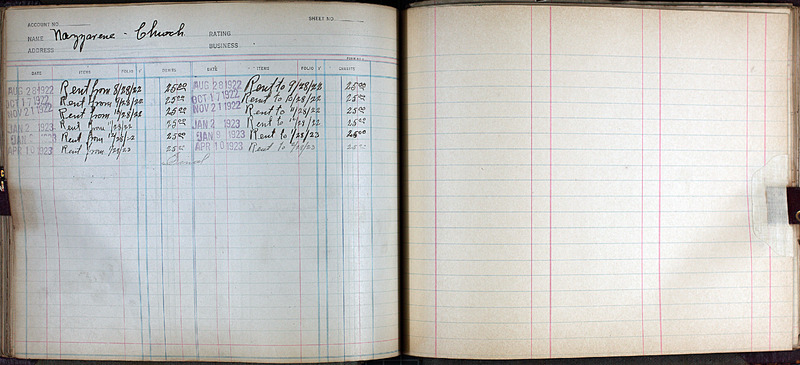 ACCOUNT NO. SHEET NO.
NAME Nazzarene - Church RATING
ADDRESS BUSINESS
DATE ITEMS FOLIO √ DEBITS DATE ITEMS FOLIO √ CREDITS
AUG 28 1922 Rent from 8/28/22 25.00 AUG 28 1922 Rent to 9/28/22 25.00
OCT 17 1922 Rent from 9/28/22 25.00 OCT 17 1922 Rent to 10/28/22 25.00
NOV 21 1922 Rent from 10/28/22 25.00 NOV 21 1922 Rent to 11/28/22 25.00
JAN 2 1923 Rent from 25.00 JAN 2 1923 Rent to 25.00
JAN Rent from 25.00 JAN 1923 Rent to 1/28/23 25.00
APR 10 1923 Rent from 25.00 APR 10 1923 Rent to 25.00